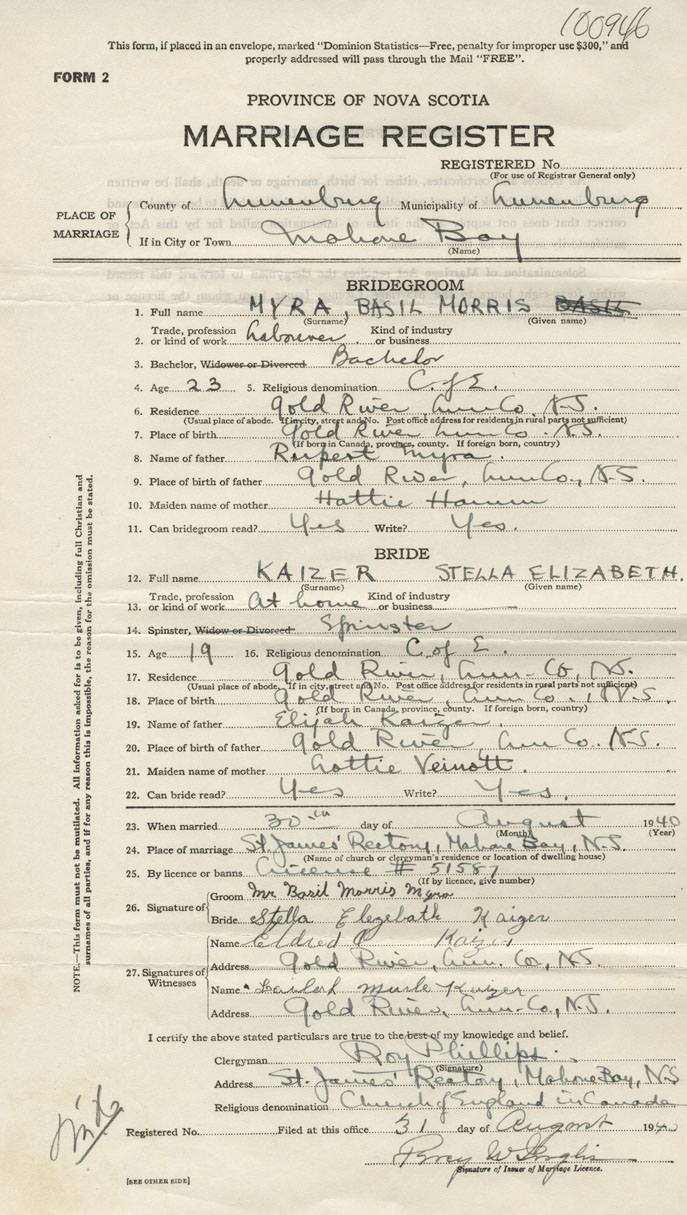 100946
This form, if placed in an envelope, marked "Dominion Statistics—Free, penalty for improper use $300," and
properly addressed will pass through the Mail "FREE".
FORM 2
PROVINCE OF NOVA SCOTIA
MARRIAGE REGISTER
REGISTERED No.
(For use of Registrar General only)
PLACE OF MARRIAGE
County of Lunenburg Municipality of Lunenburg
If in City or Town Mahone Bay
(Name)
BRIDEGROOM
1. Full name MYRA, BASIL MORRIS BASIL
(Surname) (Given name)
2. Trade, profession or kind of work Labourer Kind of industry or business
3. Bachelor, Widower or Divorced Bachelor
4. Age 23 5. Religious denomination C. of E.
6. Residence Gold River, Lun. Co. N.S.
(Usual place of abode. If in city, street and No. Post office address for residents in rural parts not sufficient)
7. Place of birth Gold River Lun. Co. N.S.
(If born in Canada, province, county. If foreign born, country)
8. Name of father Rupert Myra.
9. Place of birth of father Gold River, Lun. Co., N.S.
10. Maiden name of mother Hattie Hamm
11. Can bridegroom read? Yes Write? Yes.
BRIDE
12. Full name KAIZER STELLA ELIZABETH.
(Surname) (Given name)
13. Trade, profession or kind of work At home Kind of industry or business
14. Spinster, Widow or Divorced Spinster
15. Age 19 16. Religious denomination C. of E.
17. Residence Gold River, Lun. Co., N.S.
(Usual place of abode. If in city, street and No. Post office address for residents in rural parts not sufficient)
18. Place of birth Gold River, Lun. Co., N.S.
(If born in Canada, province, county. If foreign born, country)
19. Name of father Elijah Kaizer.
20. Place of birth of father Gold River, Lun. Co. N.S.
21. Maiden name of mother Lottie Veinott.
22. Can bride read? Yes Write? Yes.
23. When married 30th day of August 1940
(Month) (Year)
24. Place of marriage St. James' Rectory, Mahone Bay, N.S.
(Name of church or clergyman's residence or location of dwelling house)
25. By licence or banns License # 51587
(If by licence, give number)
26. Signature of
Groom Mr Basil Morris Myra
Bride Stella Elezebath Kaizer
27. Signatures of Witnesses
Name Eldred Kaizer
Address Gold River, Lun. Co., N.S.
Name Murle Kaizer
Address Gold River, Lun. Co., N.S.
I certify the above stated particulars are true to the best of my knowledge and belief.
Clergyman Roy Phillips.
(Signature)
Address St. James' Rectory, Mahone Bay, N.S
Religious denomination Church of England in Canada
Registered No. Filed at this office 31 day of August 1940
Signature of Issuer of Marriage Licence.
[SEE OTHER SIDE]
NOTE.—This form must not be mutilated. All information asked for is to be given, including full Christian and
surnames of all parties, and if for any reason this is impossible, the reason for the omission must be stated.